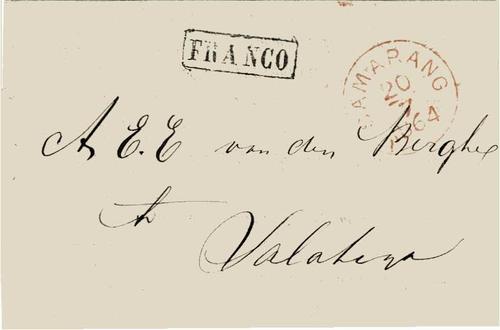 FRANCO
SAMARANG
20
64
A E. E van den Berghe
te
Salatiga